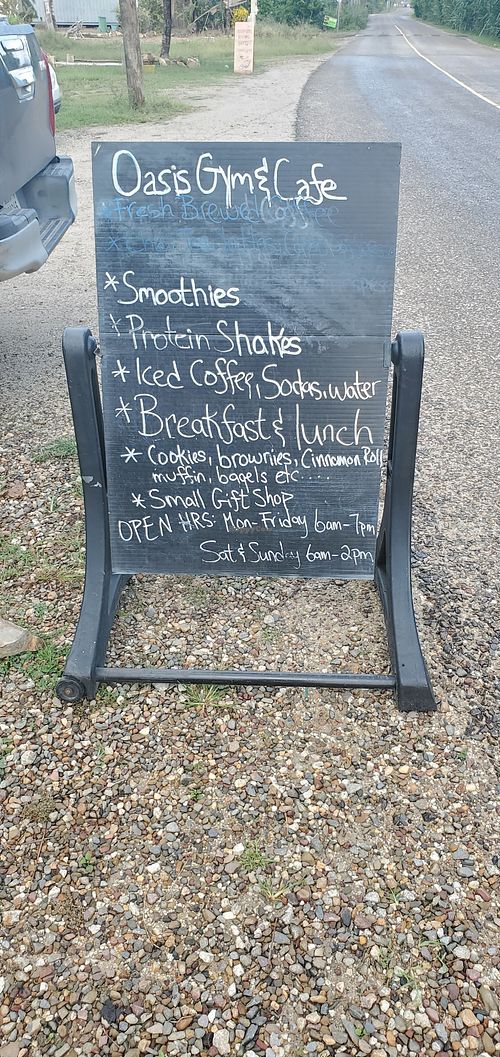 Oasis Gym & Cafe
*Fresh Brewed Coffee
*Smoothies
*Protein Shakes
*Iced Coffee, Sodas, water
*Breakfast & lunch
*Cookies, brownies, Cinnamon Roll
muffin, bagels etc....
*Small Gift Shop
OPEN HRS: Mon-Friday 6am-7pm
Sat & Sunday 6am-2pm